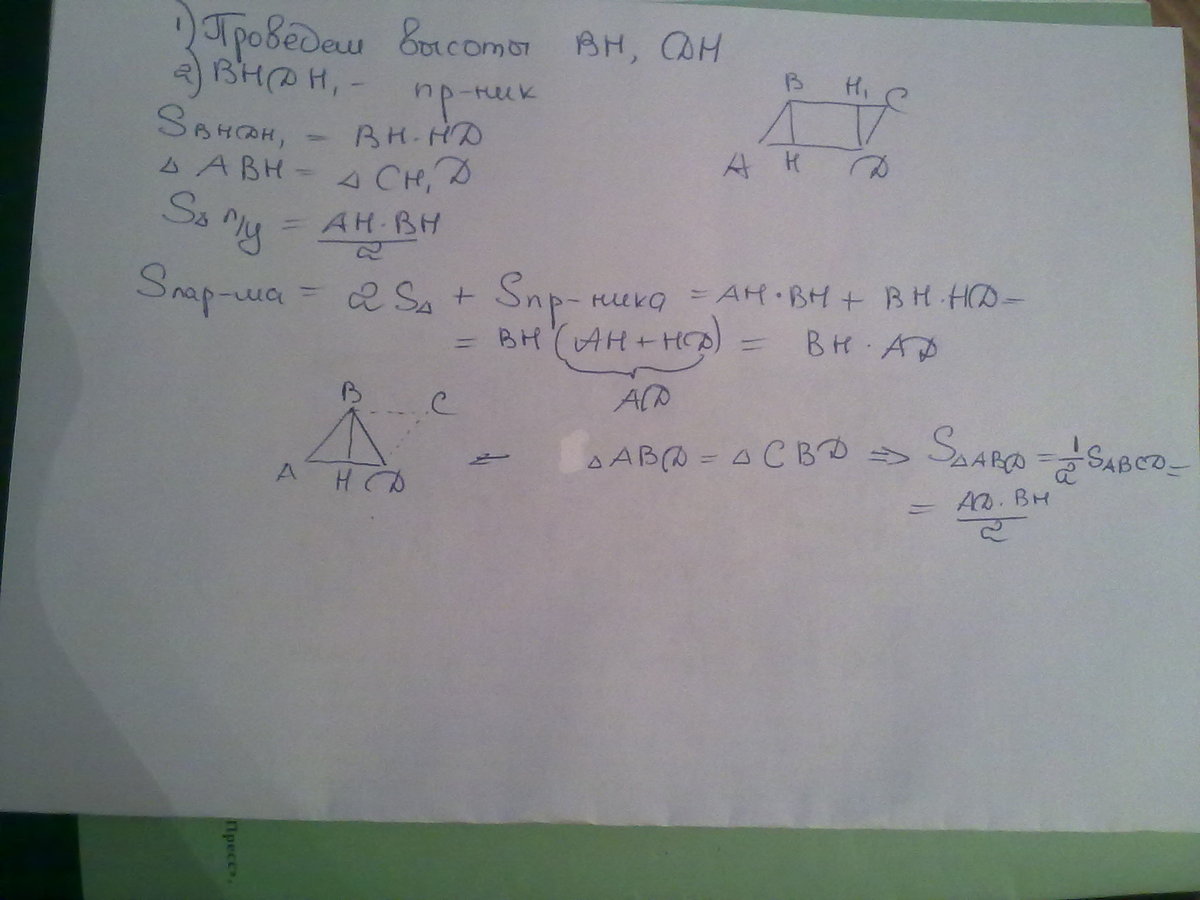 1) Проведем высоты BH, DH
2) BHDH₁ - пр-ник
B H₁ C
A H D
S BHDH₁ = BH·HD
△ ABH = △ CH₁D
S△ п/у = AH·BH / 2
Sпар-ма = 2S△ + Sпр-ника = AH·BH + BH·HD =
= BH (AH + HD) = BH · AD
AD
B C
A H D
△ABD = △CBD ⇒ S△ABD = 1/2 SABCD =
= AD·BH / 2
Пресс»,